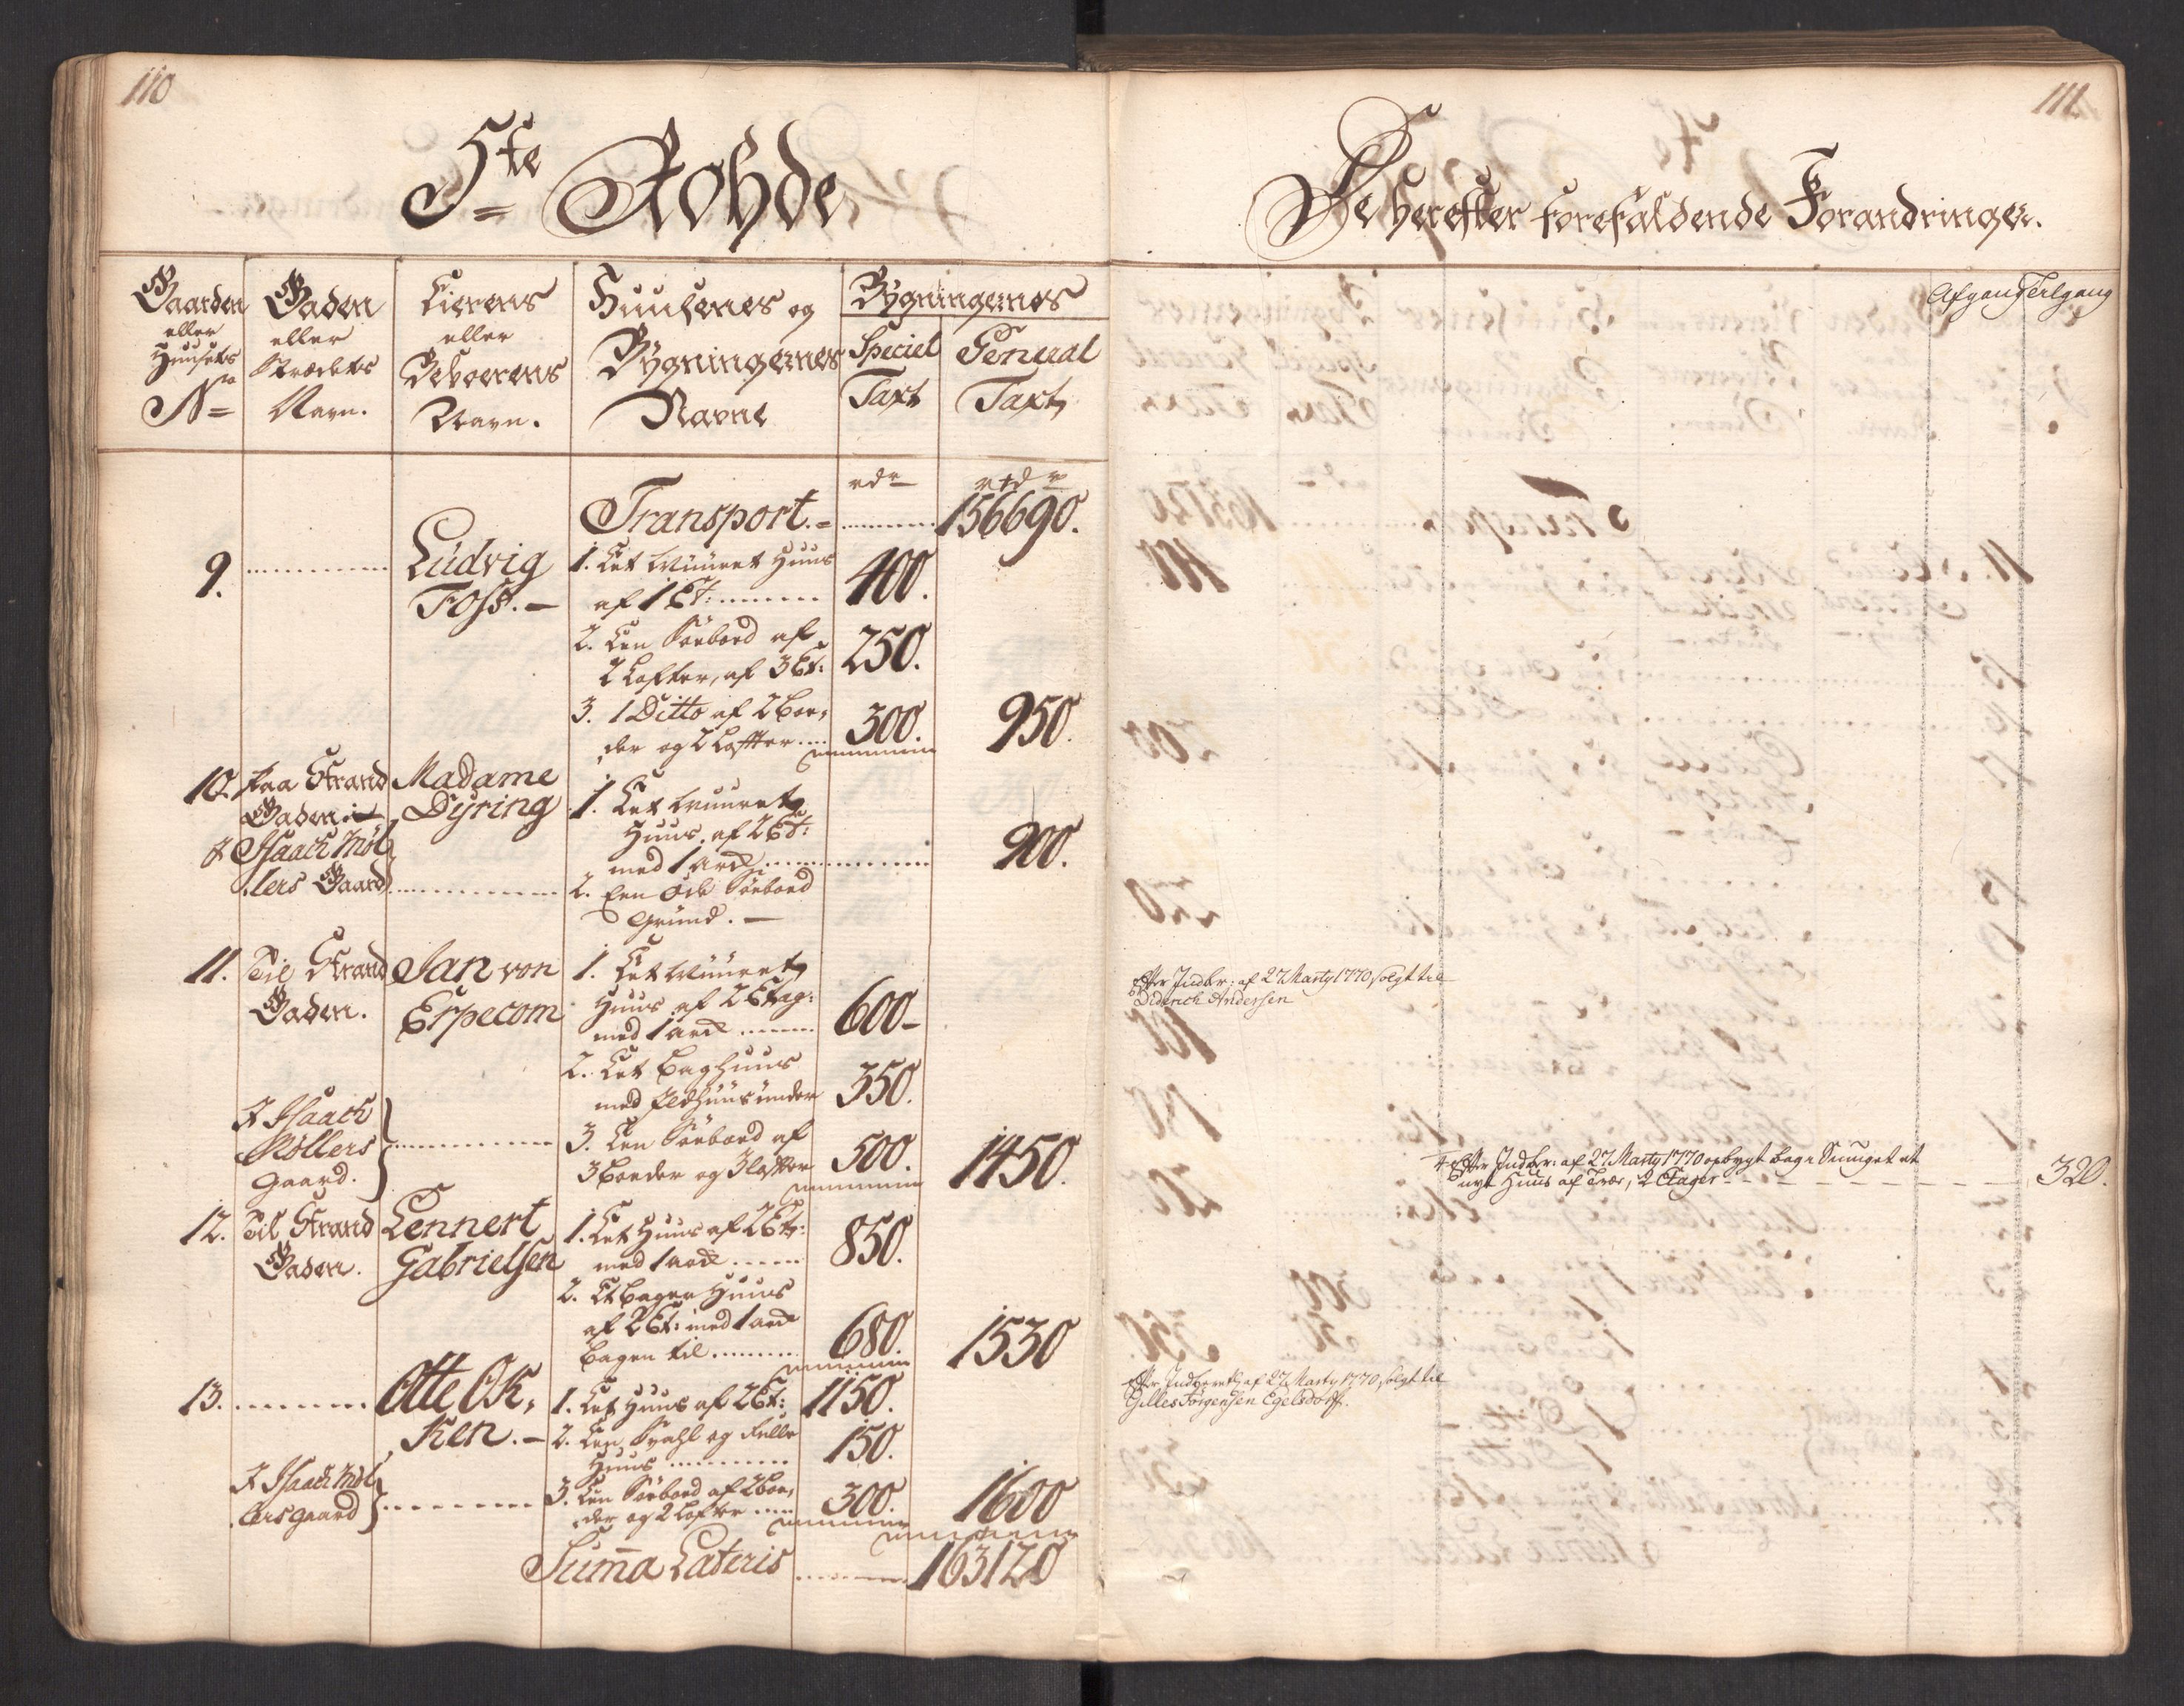 110
5te Rohde
Gaarden eller Huusets No
Gaden eller Strædets Navn.
Eierens eller Beboerens Navn.
Huusenes og Bygningernes Navne
Bygningernes
Speciel Taxt
General Taxt
rdr
rtdr
Transport.
156690.
9.
Ludvig
Foss.
1. Eet Muuret Huus
af 1 Et:
400.
2. Een Søebod af
2 Lofter, af 3 Et:
250.
3. 1 Ditto af 2 Boe,
der og 2 Loffter
300.
950.
10. Paa Strand
Gaden i
Madame
Dyring
1. Eet Muuret
Huus af 2 Et:
med 1 Arck
900.
J Isaach Møl
lers Gaard
2. Een Øde Søeboed
Grund.
11. Til Strand
Gaden.
Jan von
Erpecom
1. Eet Muuret
Huus af 2 Etag:
med 1 Arck
600
2. Eet Baghuus
med Ildhuus under
350.
J Isaach
Møllers
Gaard.
3. Een Søeboed af
3 Boeder og 3 Lofter
500.
1450.
12. Til Strand
Gaden.
Lennert
Gabrielsen
1. Eet Huus af 2 Et:
med 1 Arck
850.
2. Et Bagre Huus
af 2 Et: med 1 Arck
bagen til
680.
1530
13.
Otte Ok,
ken.
1. Eet Huus af 2 Et:
1150.
2. Een Svahl og
Huus
150.
J Isaach Møl
lers gaard
3. Een Søeboed af 2 Boe,
der og 2 Lofter
300.
1600
Summa Lateris
163120
111.
De herefter forefaldende Forandringer.
Afgang Tilgang
Efter Indber: af 27 Marty 1770 solgt til
Diderich Andersen
Efter Indber: af 27 Marty 1770 opbygt bag i Smuget et
nyt Huus af Træe, 2 Etager
320.
Efter Indberetn: af 27 Marty 1770 solgt til
Gilles Jørgensen Egelsdorff.